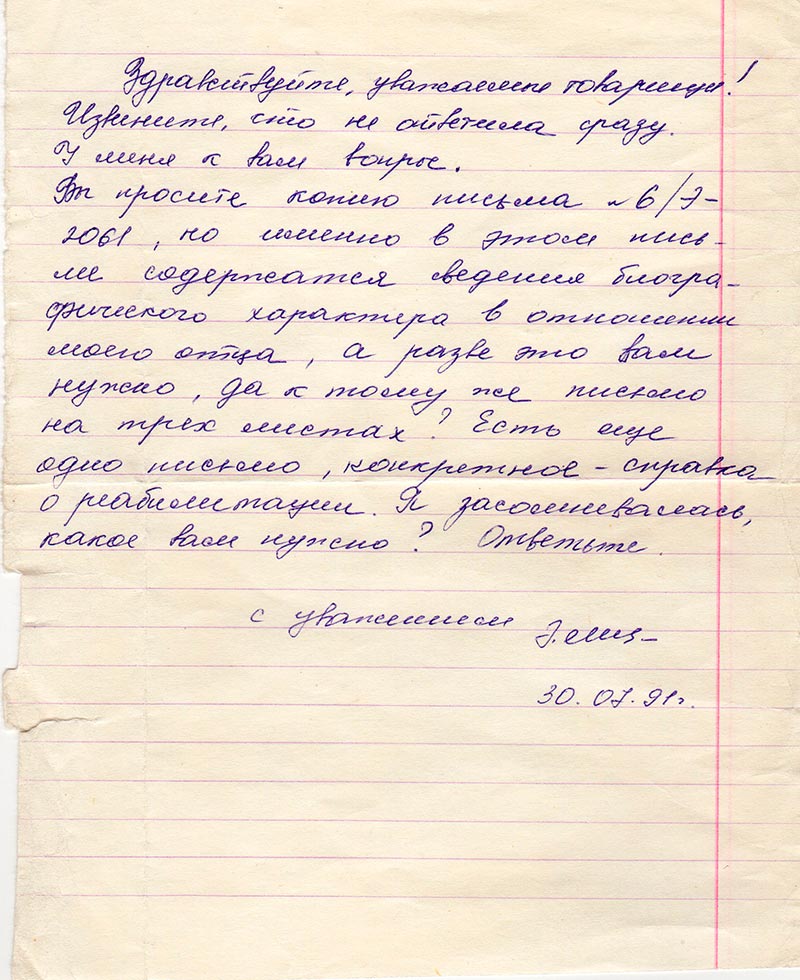 Здравствуйте, уважаемые товарищи!
Извините, что не ответила сразу.
У меня к вам вопрос.
Вы просите копию письма №6/Э-
2061, но именно в этом пись-
ме содержатся сведения биогра-
фического характера в отношении
моего отца, а разве это вам
нужно, да к тому же письмо
на трех листах? Есть еще
одно письмо, конкретное - справка
о реабилитации. Я засомневалась,
какое вам нужно? Ответьте.
с уважением
30.07.91г.